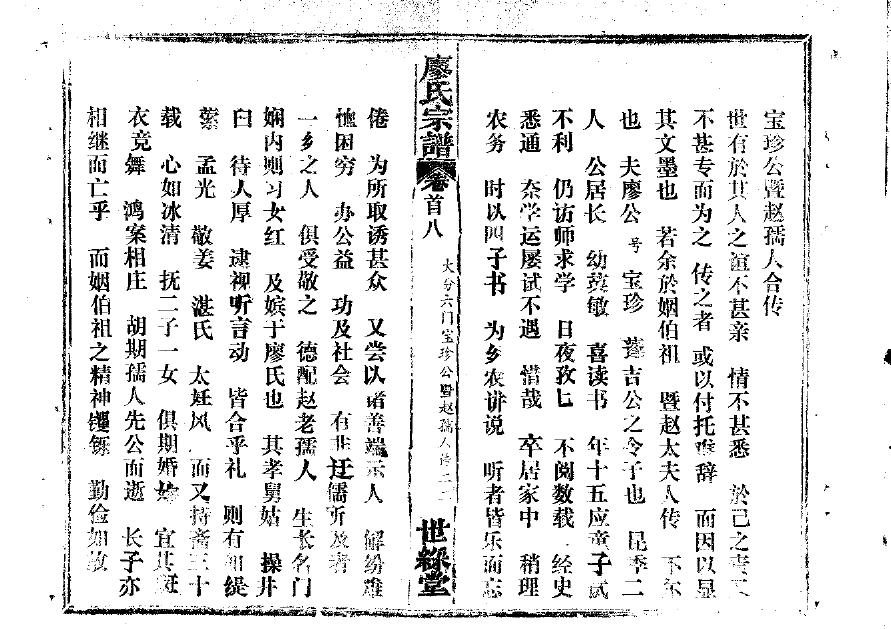 宝珍公暨赵孺人合传
世有於其人之谊不甚亲 情不甚悉 於己之
不甚专而为之 传之者 或以付托难辞 而因以显
其文墨也 若余於姻伯祖 暨赵太夫人传 不
也 夫廖公 号 宝珍 蓬吉公之令子也 昆季二
人 公居长 幼冀敏 喜读书 年十五应童子试
不利 仍访师求学 日夜孜七 不阅数载 经史
悉通 奈学运屡试不遇 惜哉 卒居家中 稍理
农务 时以四子书 为乡农讲说 听者皆乐而忘
廖氏宗譜 卷首八
大分六门宝珍公暨赵孺人传二
世綵堂
倦 为所取诱甚众 又尝以诸善端示人 解纷难
恤困穷 办公益 功及社会 有非迂儒所及者
一乡之人 俱受敬之 德配赵老孺人 生长名门
娴内则习女红 及嫔于廖氏也 其孝舅姑 操井
臼 待人厚 逮视听言动 皆合乎礼 则有如缇
萦 孟光 敬姜 湛氏 太妊风 而又持斋三十
载 心如冰清 抚二子一女 俱期婚嫁 宜其斑
衣竞舞 鸿案相庄 胡期孺人先公而逝 长子亦
相继而亡乎 而姻伯祖之精神钁铄 勤俭如故